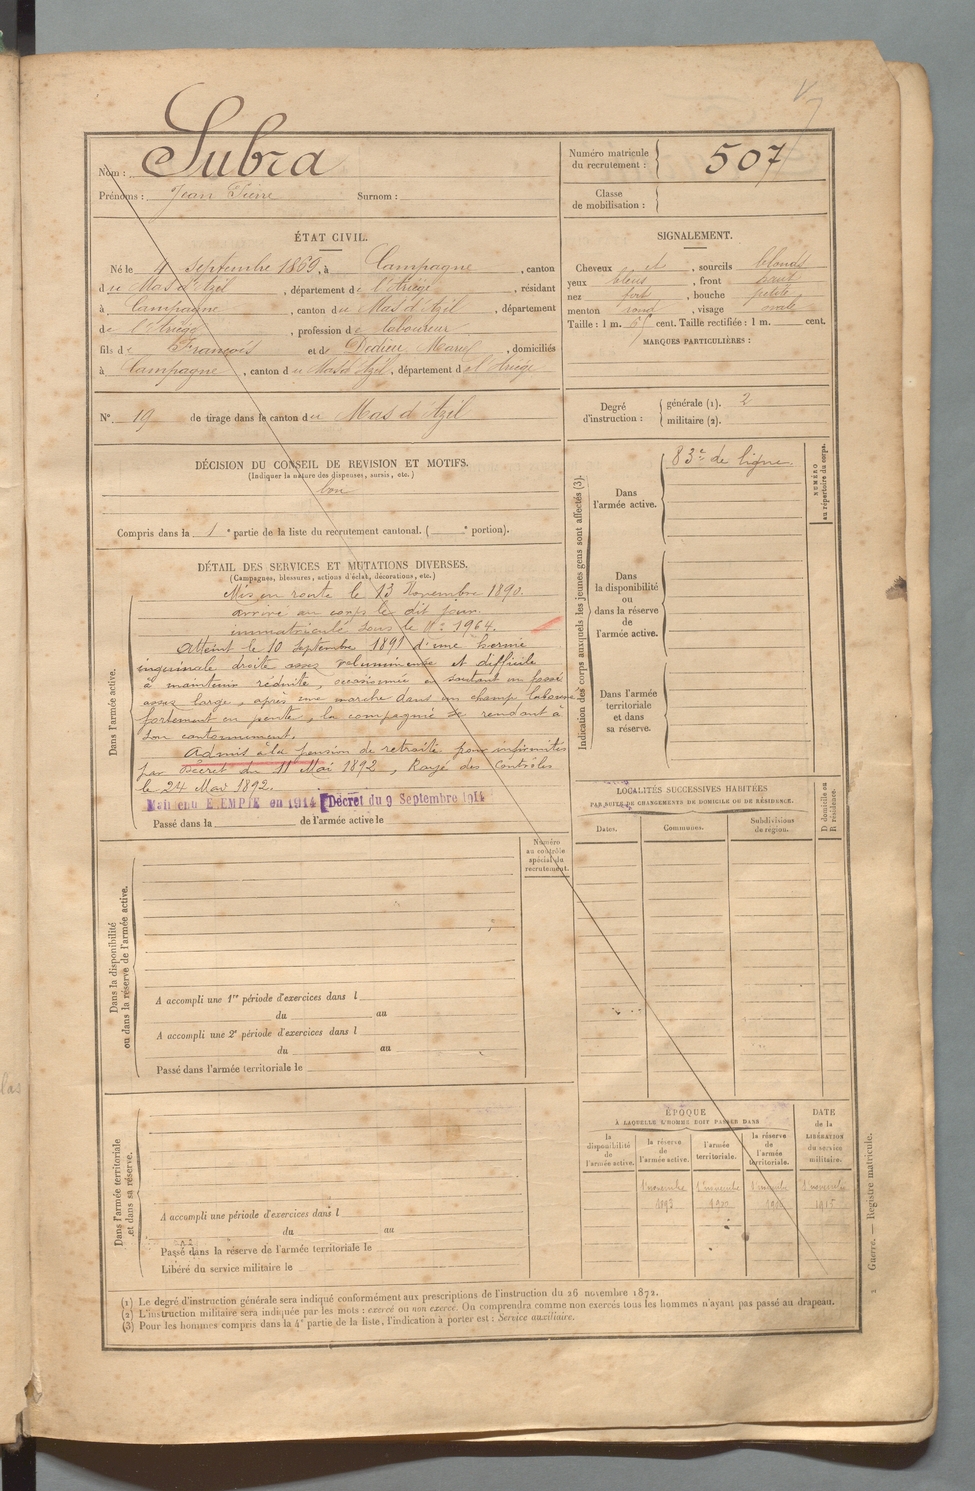 Nom : Subra
Prénoms : Jean Pierre Surnom :
Numéro matricule du recrutement : 507
Classe de mobilisation :
ÉTAT CIVIL.
Né le 4 Septembre 1869, à Campagne, canton
du Mas d'Azil, département de l'Ariège, résidant
à Campagne, canton du Mas d'Azil, département
de l'Ariège, profession de laboureur
fils de François et de Dedieu Marie, domiciliés
à Campagne, canton du Mas d'Azil, département de l'Ariège
N° 19 de tirage dans le canton du Mas d'Azil
SIGNALEMENT.
Cheveux et, sourcils blonds
yeux bleus, front haut
nez fort, bouche petite
menton rond, visage ovale
Taille : 1 m. cent. Taille rectifiée : 1 m. cent.
MARQUES PARTICULIÈRES :
Degré d'instruction : générale (1). 2
militaire (2).
DÉCISION DU CONSEIL DE REVISION ET MOTIFS.
(Indiquer la nature des dispenses, sursis, etc.)
bon
Compris dans la 1e partie de la liste du recrutement cantonal. ( e portion).
DÉTAIL DES SERVICES ET MUTATIONS DIVERSES.
(Campagnes, blessures, actions d'éclat, décorations, etc.)
Dans l'armée active.
Mis en route le 13 Novembre 1890.
arrivé au corps le dit jour.
immatriculé sous le N° 1964.
Atteint le 10 Septembre 1891 d'une hernie
inguinale droite assez volumineuse et difficile
à maintenir réduite, occasionnée en sautant un fossé
assez large, après une marche dans un champ labouré
fortement en pente, la compagnie se rendant à
son cantonnement.
Admis à la pension de retraite pour infirmités
par Décret du 11 Mai 1892, Rayé des contrôles
le 24 Mai 1892.
Maintenu EXEMPTÉ en 1914 Décret du 9 Septembre 1914
Passé dans la de l'armée active le
Indication des corps auxquels les jeunes gens sont affectés (3).
NUMÉRO au répertoire du corps.
Dans l'armée active. 83e de ligne
Dans la disponibilité ou dans la réserve de l'armée active.
Dans l'armée territoriale et dans sa réserve.
LOCALITÉS SUCCESSIVES HABITÉES
PAR SUITE DE CHANGEMENTS DE DOMICILE OU DE RÉSIDENCE.
Dates. Communes. Subdivisions de région. D domicile ou R résidence.
Numéro au contrôle spécial du recrutement.
Dans la disponibilité ou dans la réserve de l'armée active.
A accompli une 1re période d'exercices dans l
du au
A accompli une 2e période d'exercices dans l
du au
Passé dans l'armée territoriale le
Dans l'armée territoriale et dans sa réserve.
A accompli une période d'exercices dans l
du au
Passé dans la réserve de l'armée territoriale le
Libéré du service militaire le
ÉPOQUE
À LAQUELLE L'HOMME DOIT PASSER DANS
la disponibilité de l'armée active. la réserve de l'armée active. l'armée territoriale. la réserve de l'armée territoriale.
DATE de la LIBÉRATION du service militaire.
1 novembre 1893 1 novembre 1900 1 novembre 1 novembre 1915
(1) Le degré d'instruction générale sera indiqué conformément aux prescriptions de l'instruction du 26 novembre 1872.
(2) L'instruction militaire sera indiquée par les mots : exercé ou non exercé. On comprendra comme non exercés tous les hommes n'ayant pas passé au drapeau.
(3) Pour les hommes compris dans la 4e partie de la liste, l'indication à porter est : Service auxiliaire.
Guerre. — Registre matricule.